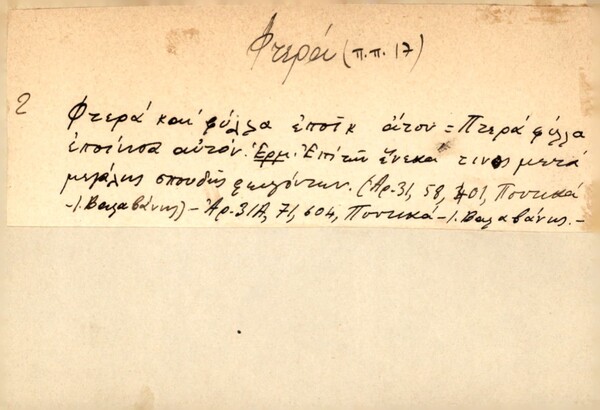 Φτερά (π.π. 17)
2 Φτερά καί φύλλα ἐποῖκ ἀτον = Πτερά φύλλα
ἐποίησα αὐτόν. Ἑρμ. Ἐπί τῶν ἕνεκά τινος μετά
μεγάλης σπουδῆς φευγόντων. (Ἀρ. 31, 58, 401, Ποντικά
-Ι. Βαλαβάνης) - Ἀρ. 31Α, 71, 604, Ποντικά - Ι. Βαλαβάνης. -